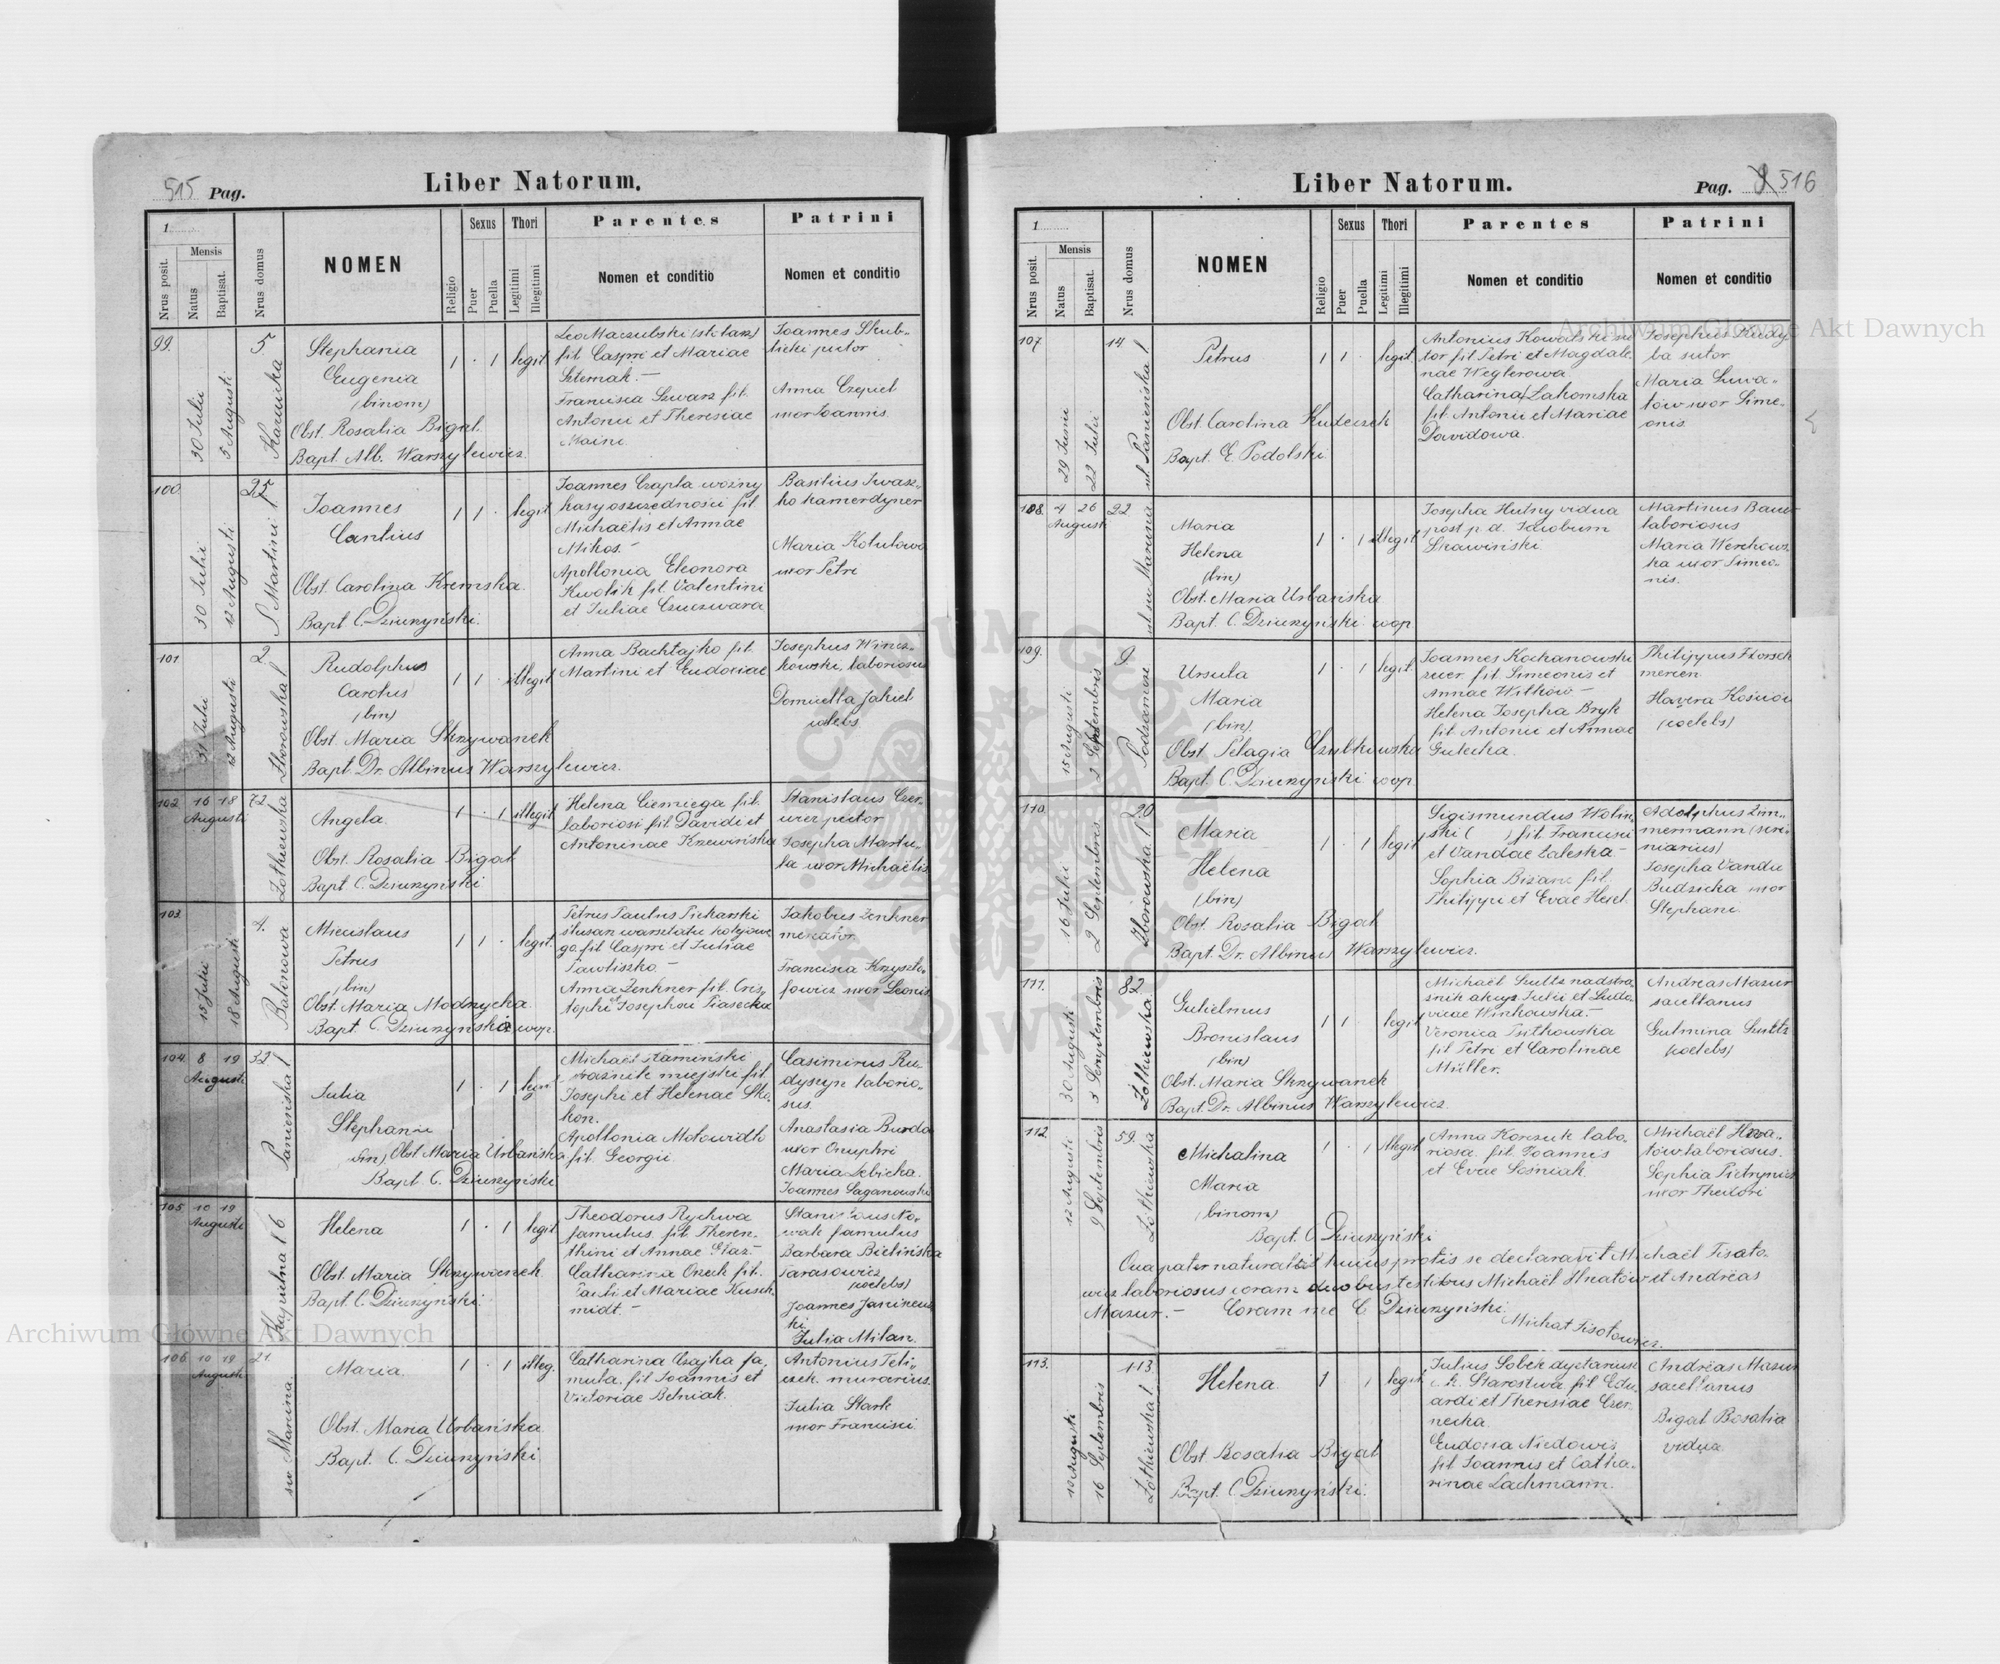 515 Pag.
Liber Natorum.
1
Nrus posit.
Mensis
Natus
Baptisat.
Nrus domus
NOMEN
Religio
Sexus
Puer
Puella
Thori
Legitimi
Illegitimi
Parentes
Nomen et conditio
Patrini
Nomen et conditio
99.
30 Julii
5 Augusti
5.
Stephania
Eugenia
(binom)
Obst. Rosalia Bigal.
Bapt. Alb. Warszylewicz.
1 . 1 legit
fil. Caspri et Mariae
Szternak. —
Francisca Szwarz fil.
Antonii et Theresiae
Maini.
Joannes Skub-
licki pictor
Anna Czepiel
uxor Joannis.
100.
30 Julii
12 Augusti
S. Martini l.
25.
Joannes
Cantius
Obst. Carolina Kremska.
Bapt C. Dziurzyński.
1 1 . legit
Joannes Czapla woźny
kasy oszczedności fil
Michaëlis et Annae
Mikos. —
Apollonia Eleonora
Kwolik fil. Valentini
et Juliae
Basilius Iwasz-
ko kamerdyner
Maria Kotulowa
uxor Petri
101.
31 Julii
12 Augusti
Zborowska l
2.
Rudolphus
Carolus
(bin)
Obst. Maria Skrzywanek
Bapt. Dr. Albinus Warszylewicz.
1 1 . illegit
Anna Bachtajko fil.
Martini et Eudociae
Josephus Wincz-
kowski, laboriosus
Domicella Jakiel
coelebs.
102.
16 18
Augusti
72
Żołkiewska
Angela.
Obst. Rosalia Bigal
Bapt C. Dziurzyński
1 . 1 illegit
Helena Ciemięga fil.
laboriosi fil. Davidi et
Antoninae Krzewińska
Stanislaus Czer-
wiez pictor
Josepha Martu-
la uxor Michaëlis
103.
15 Julii
18 Augusti
Balonowa
4.
Miecislaus
Petrus
(bin)
Obst. Maria Modrzycka.
Bapt C. Dziurzyński coop.
1 1 . legit.
Petrus Paulus Piekarski
ślusarz warsztatu kolejowe
go. fil. Caspri et Juliae
Pawliszko. —
Anna Zenkner fil. Cris-
tophi et Josephae Piasecka
Jakobus Zenkner
mercator.
Francisca Krzyszto-
fowicz uxor Leonis
104.
8 19
Augusti
32
Panieńska l
Julia
Stephania
(bin) Obst Maria Urbańska
Bapt C. Dziurzyński
1 . 1 legit
Michaël Stamiński
strażnik miejski fil.
Josephi et Helenae Sko-
kon.
Apollonia Motowidło
fil. Georgii.
Casimirus Ru-
dyszyn laborio-
sus.
Anastasia Burda
uxor Onuphri
Maria Lebicka.
Joannes Saganowski
105.
10 19
Augusti
Kąpielna l 6
Helena
Obst. Maria Skrzywanek
Bapt. C. Dziurzyński.
1 . 1 legit
Theodorus Rychwa
famulus fil. Theren-
thini et Annae Głaz. —
Catharina Orzech fil.
Pauli et Mariae Kusch-
midt. —
Stanislaus No-
wak famulus
Barbara Bielińska
Tarasowicz
(coelebs)
Joannes Janiszew
ski
Julia Milan.
106.
10 19
Augusti
21.
sw Marcina.
Maria.
Obst. Maria Urbańska.
Bapt. C. Dziurzyński.
1 . 1 illeg.
Catharina Czajka fa-
mula, fil. Joannis et
Victoriae Betniak.
Antonius Peli-
czek. murarius.
Julia Stark
uxor Francisci
Liber Natorum.
Pag. 516
1
Nrus posit.
Mensis
Natus
Baptisat.
Nrus domus
NOMEN
Religio
Sexus
Puer
Puella
Thori
Legitimi
Illegitimi
Parentes
Nomen et conditio
Patrini
Nomen et conditio
107.
29 Junii
22 Julii
ul. Panieńska l
14
Petrus
Obst. Carolina Kudelzek
Bapt. E. Podolski.
1 1 . legit.
Antonius Kowalski su-
tor fil Petri et Magdale-
nae Węglerowa.
Catharina Lakomska
fil. Antonii et Mariae
Davidowa.
Josephus Kudy-
ba sutor
Maria Suwa-
low uxor Sime-
onis.
108.
4 26
Augusti
22.
ul sw Marcina
Maria
Helena
(bin)
Obst. Maria Urbańska
Bapt. C. Dziurzyński coop.
1 . 1 illegit
Josepha Hulny vidua
post p. d. Jacobum
Skawiński.
Martinus Baur
laboriosus
Maria Werchows-
ka uxor Simeo-
nis.
109.
15 Augusti
2 Septembris
Podzamcze
9.
Ursula
Maria
(bin).
Obst. Pelagia Czubkowska
Bapt. C. Dziurzyński coop.
1 . 1 legit
Joannes Kochanowski
fil. Simeonis et
Annae Witków —
Helena Josepha Bryk
fil. Antonii et Annae
Gulecka.
Philippus Florsch
mercen.
Xavera Kosiow
(coelebs)
110.
16 Julii
2 Septembris
Zborowska l
20
Maria
Helena
(bin)
Obst. Rosalia Bigal
Bapt. Dr. Albinus Warszylewicz.
1 . 1 legit
Sigismundus Wolin-
ski ( ) fil. Francisci
et Vandae Zaleska —
Sophia Bizanc fil.
Philippi et Evae Hesel.
Adolphus Zim-
mermann
Josepha Vanda
Budzicka uxor
Stephani.
111.
30 Augusti
3 Septembris
Żółkiewska.
82
Gulielmus
Bronislaus
(bin)
Obst. Maria Skrzywanek
Bapt. Dr. Albinus Warszylewicz.
1 1 . legit
Michaël Sultz nadstra-
znik akcyz Julii et Ludo-
vicae Wirkowska. —
Veronica Pietkowska
fil Petri et Carolinae
Müller.
Andreas Mazur
sacellanus
Gulmina Sultz
(coelebs)
112.
12 Augusti
9 Septembris
Żółkiewska
59.
Michalina
Maria
(binom)
Bapt. C. Dziurzyński
1 . 1 illegit
Anna Korczuk labo-
riosa. fil. Joannis
et Evae Leśniak.
Michaël Hna-
tów laboriosus.
Sophia Pietrynicz
uxor Theodori
Qua pater naturalis huius prolis se declaravit Michaël Tisało-
wicz laboriosus coram duobus testibus Michaël Hnatów et Andreas
Mazur. — Coram me C. Dziurzyński.
Michał Tisołowicz.
113.
10 Augusti
16 Septembris
Żółkiewska l.
113.
Helena.
Obst Rosalia Bigal
Bapt. C. Dziurzyński.
1 . 1 legit
Julius Sobek dyetariusz
c. k. Starostwa, fil Edu-
ardi et Theresiae Czer-
necka.
Eudoxia Niedowis
fil. Joannis et Catha-
rinae Lachmann.
Andreas Mazur
sacellanus
Bigal Rosalia
vidua
Archiwum Główne Akt Dawnych
Archiwum Główne Akt Dawnych
ARCHIWUM GŁÓWNE AKT DAWNYCH